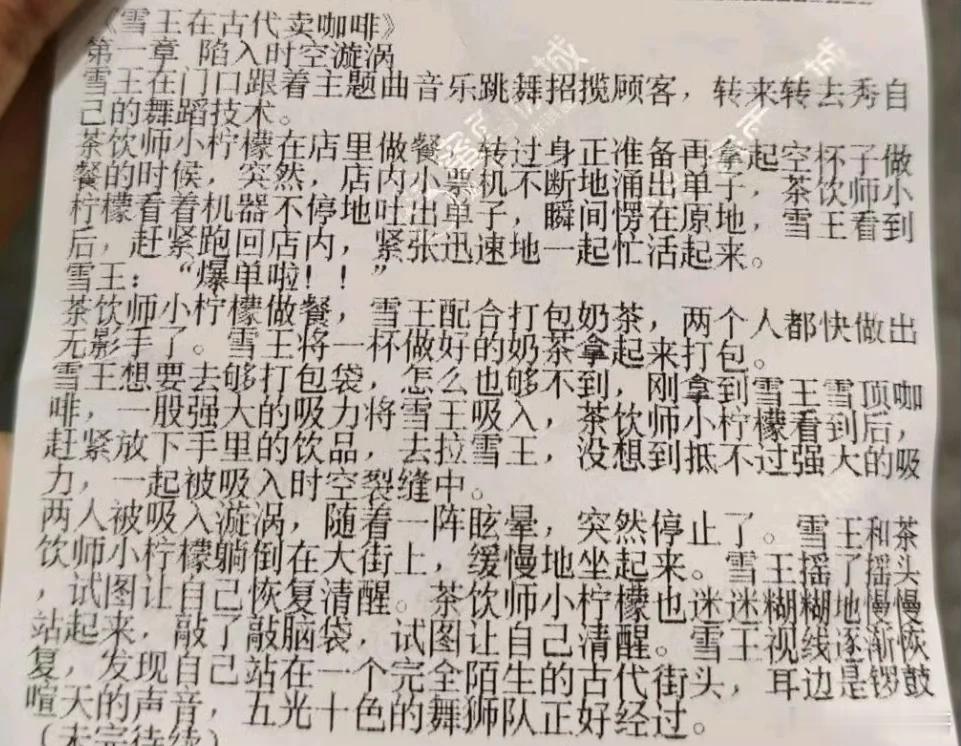 《雪王在古代卖咖啡》
第一章 陷入时空漩涡
雪王在门口跟着主题曲音乐跳舞招揽顾客，转来转去秀自
己的舞蹈技术。
茶饮师小柠檬在店里做餐，转过身正准备再拿起空杯子做
餐的时候，突然，店内小票机不断地涌出单子，茶饮师小
柠檬看着机器不停地吐出单子，瞬间愣在原地，雪王看到
后，赶紧跑回店内，紧张迅速地一起忙活起来。
雪王：“爆单啦！！”
茶饮师小柠檬做餐，雪王配合打包奶茶，两个人都快做出
无影手了。雪王将一杯做好的奶茶拿起来打包。
雪王想要去够打包袋，怎么也够不到，刚拿到雪王雪顶咖
啡，一股强大的吸力将雪王吸入，茶饮师小柠檬看到后，
赶紧放下手里的饮品，去拉雪王，没想到抵不过强大的吸
力，一起被吸入时空裂缝中。
两人被吸入漩涡，随着一阵眩晕，突然停止了。雪王和茶
饮师小柠檬躺倒在大街上，缓慢地坐起来。雪王摇了摇头
，试图让自己恢复清醒。茶饮师小柠檬也迷迷糊糊地慢慢
站起来，敲了敲脑袋，试图让自己清醒。雪王视线逐渐恢
复，发现自己站在一个完全陌生的古代街头，耳边是锣鼓
喧天的声音，五光十色的舞狮队正好经过。
（未完待续）